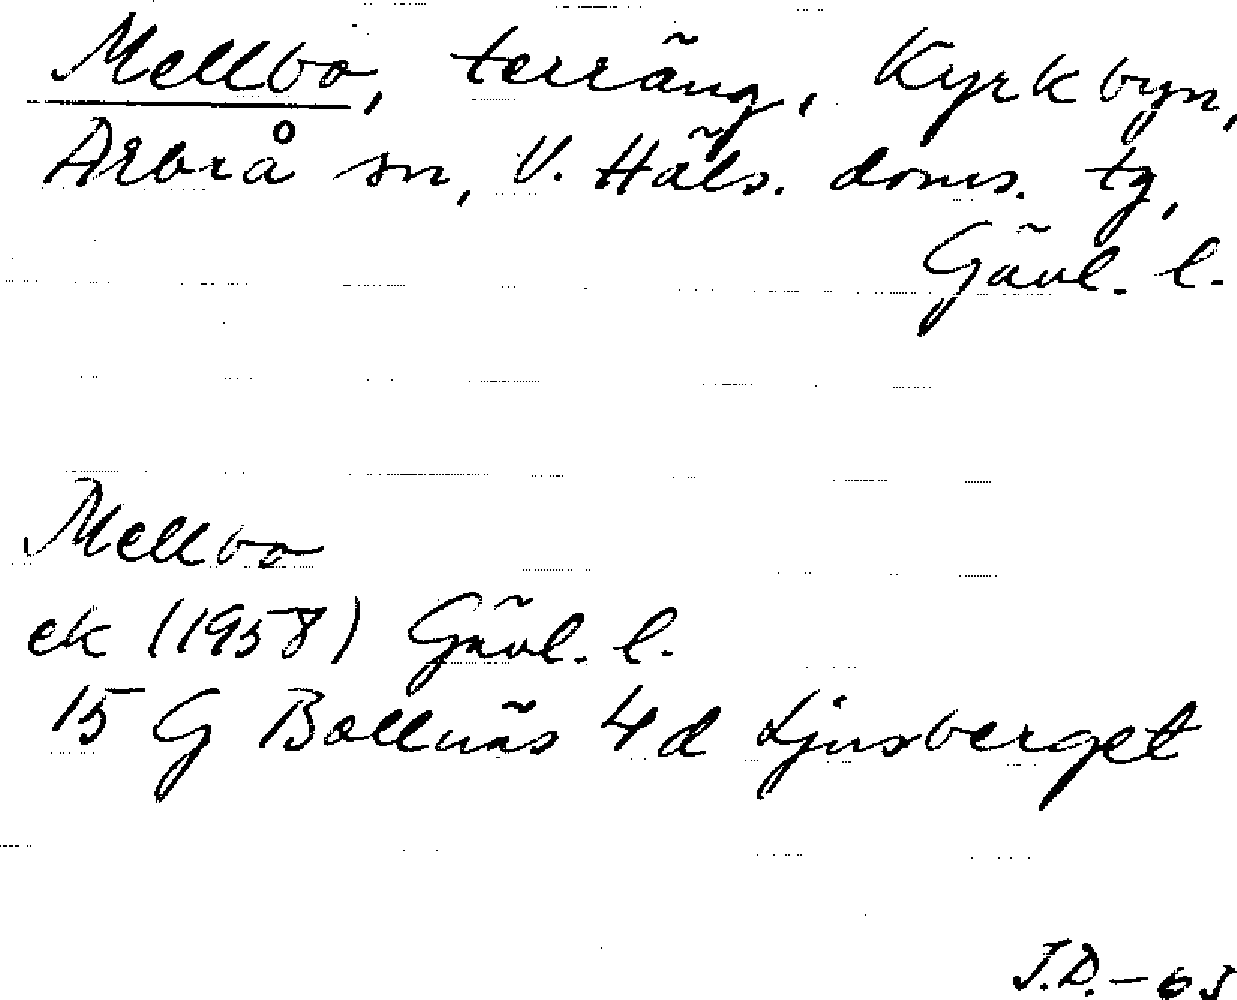 Mellbo, terräng, Kyrkbyn,
Arbrå sn, V. Häls. doms. tg,
Gävl. l.
Mellbo
ek (1958) Gävl. l.
15 G Bollnäs 4d Ljusberget
J.D. - 65